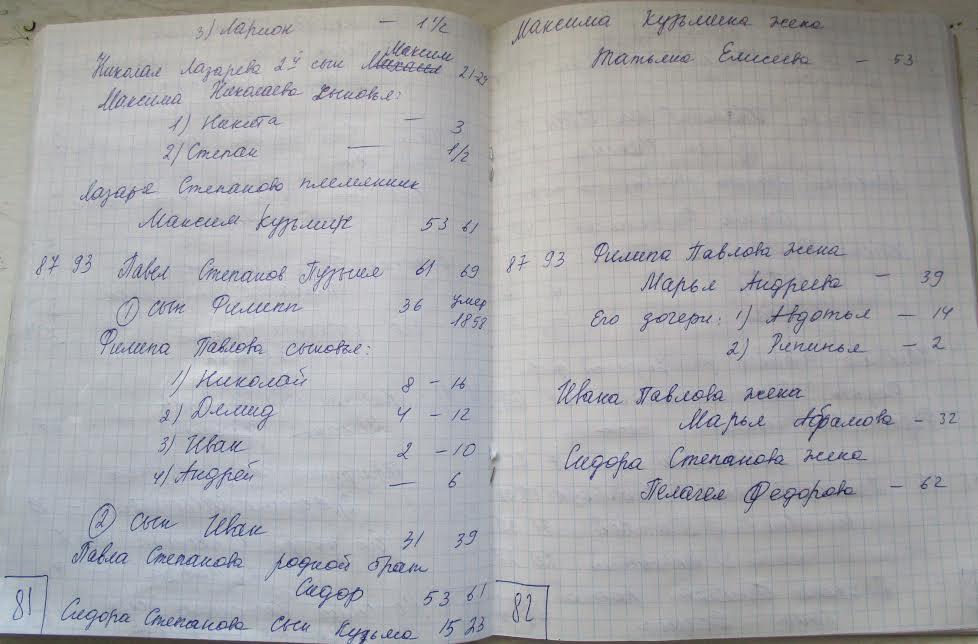 3) Ларион — 1 1/2
Николая Лазарева 2й сын Максим 21-29
Максима Николаева сыновья:
1) Никита — 3
2) Степан — 1/2
Лазаря Степаново племянник
Максим Кузьмин 53 61
87 93 Павел Степанов Пузыня 61 69
① сын Филипп 36 умер 1858
Филипа Павлова сыновья:
1) Николай 8 - 16
2) Демид 4 - 12
3) Иван 2 - 10
4) Андрей — 6
② сын Иван 31 39
Павла Степанова родной брат
Сидор 53 61
Сидора Степанова сын Кузьма 15 23
81
Максима Кузьмина жена
Татьяна Елисеева — 53
87 93 Филипа Павлова жена
Марья Андреева — 39
Его дочери: 1) Авдотья — 14
2) Рипинья — 2
Ивана Павлова жена
Марья Абрамова — 32
Сидора Степанова жена
Пелагея Федорова — 62
82